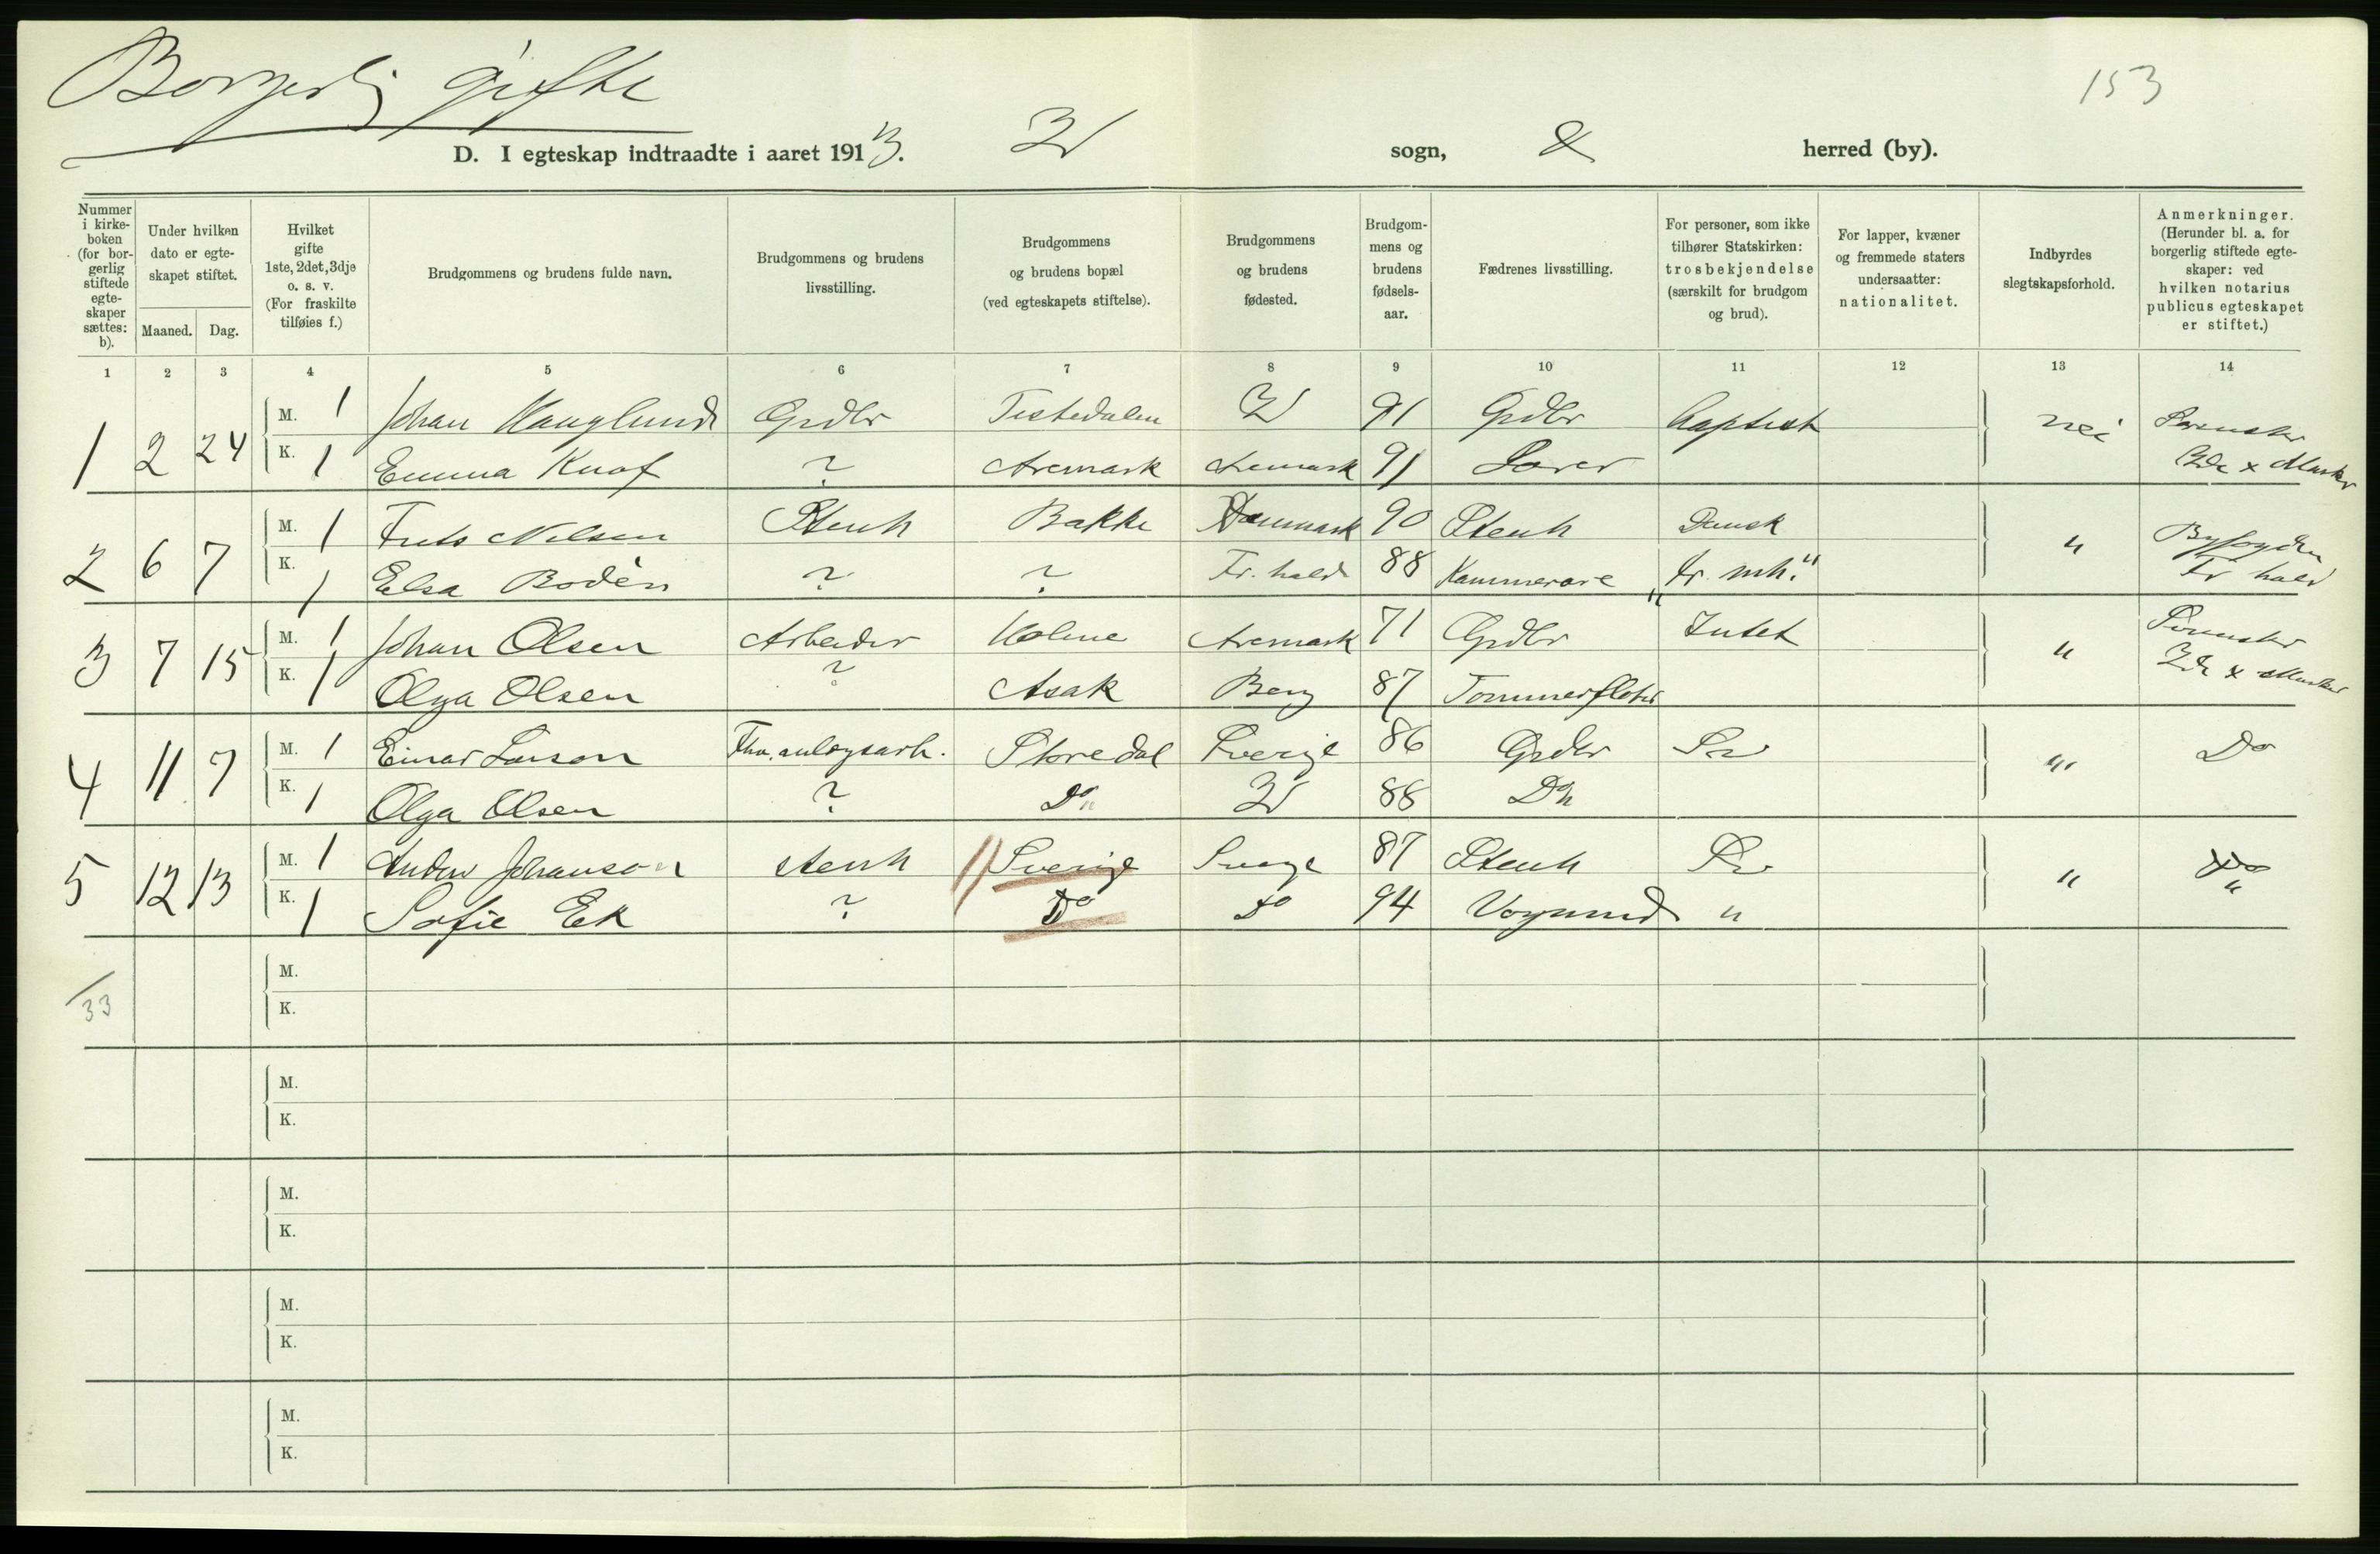 Borgerlig gifte
153
D. I egteskap indtraadte i aaret 1913. Id sogn, & herred (by).
Nummer i kirkeboken (for borgerlig stiftede egteskaper sættes: b).
Under hvilken dato er egteskapet stiftet.
Maaned. Dag.
Hvilket gifte 1ste, 2det, 3dje o. s. v. (For fraskilte tilføies f.)
Brudgommens og brudens fulde navn.
Brudgommens og brudens livsstilling.
Brudgommens og brudens bopæl (ved egteskapets stiftelse).
Brudgommens og brudens fødested.
Brudgommens og brudens fødselsaar.
Fædrenes livsstilling.
For personer, som ikke tilhører Statskirken: trosbekjendelse (særskilt for brudgom og brud).
For lapper, kvæner og fremmede staters undersaatter: nationalitet.
Indbyrdes slegtskapsforhold.
Anmerkninger. (Herunder bl. a. for borgerlig stiftede egteskaper: ved hvilken notarius publicus egteskapet er stiftet.)
1 2 3 4 5 6 7 8 9 10 11 12 13 14
1 2 24 M. 1 Johan Hauglund Grdbr Tistedalen Id 91 Grdbr Baptist nei Sorenskr
K. 1 Emma Knof ? Aremark Aremark 91 Lærer Idd & Marker
2 6 7 M. 1 Frits Nilsen Stenh Bakke Danmark 90 Stenh Dansk " Byfogden
K. 1 Elsa Bodén ? ? Fr. hald 88 Kammerare "fr. mh." Fr hald
3 7 15 M. 1 Johan Olsen Arbeider Holme Aremark 71 Grdbr Intet " Sorenskr
K. 1 Olga Olsen ? Asak Berg 87 Tømmerfløter Idd & Marker
4 11 7 M. 1 Einar Larson anlægsarb. Storedal Sverige 86 Grdbr Sv " Do
K. 1 Olga Olsen ? Do Id 88 Do
5 12 13 M. 1 Anders Johanson stenh Sverige Sverige 87 Stenh Sv " Do
K. 1 Sofie Ek ? Do Do 94 Vognmd "
M.
33
K.
M.
K.
M.
K.
M.
K.
M.
K.